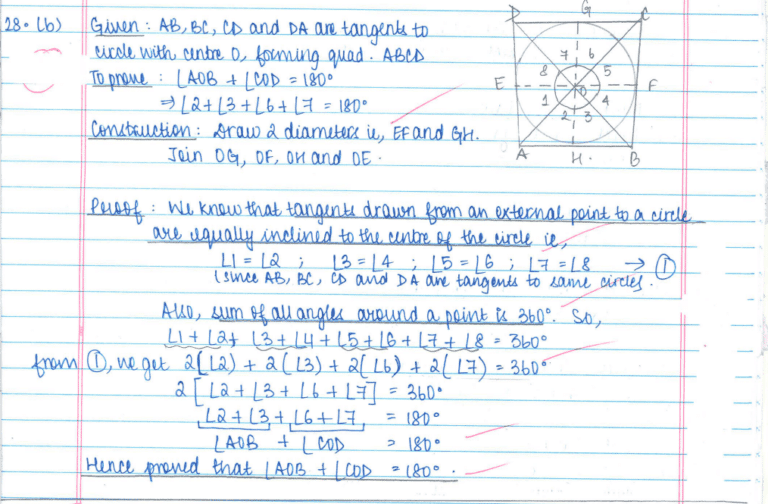 28. (b) Given : AB, BC, CD and DA are tangents to
circle with centre O, forming quad. ABCD
To prove : ∠AOB + ∠COD = 180°
⇒ ∠2+∠3+∠6+∠7 = 180°
Construction : Draw 2 diameters ie, EF and GH.
Join OG, OF, OH and OE.
D G C
7 6
8 5
E O F
1 4
2 3
A H. B
Proof : We know that tangents drawn from an external point to a circle
are equally inclined to the centre of the circle ie,
∠1 = ∠2 ; ∠3 = ∠4 ; ∠5 = ∠6 ; ∠7 = ∠8 → ①
(since AB, BC, CD and DA are tangents to same circle).
Also, sum of all angles around a point is 360°. So,
∠1 + ∠2 + ∠3 + ∠4 + ∠5 + ∠6 + ∠7 + ∠8 = 360°
from ①, we get 2(∠2) + 2(∠3) + 2(∠6) + 2(∠7) = 360°
2[∠2 + ∠3 + ∠6 + ∠7] = 360°
∠2 + ∠3 + ∠6 + ∠7 = 180°
∠AOB + ∠COD = 180°
Hence proved that ∠AOB + ∠COD = 180°.